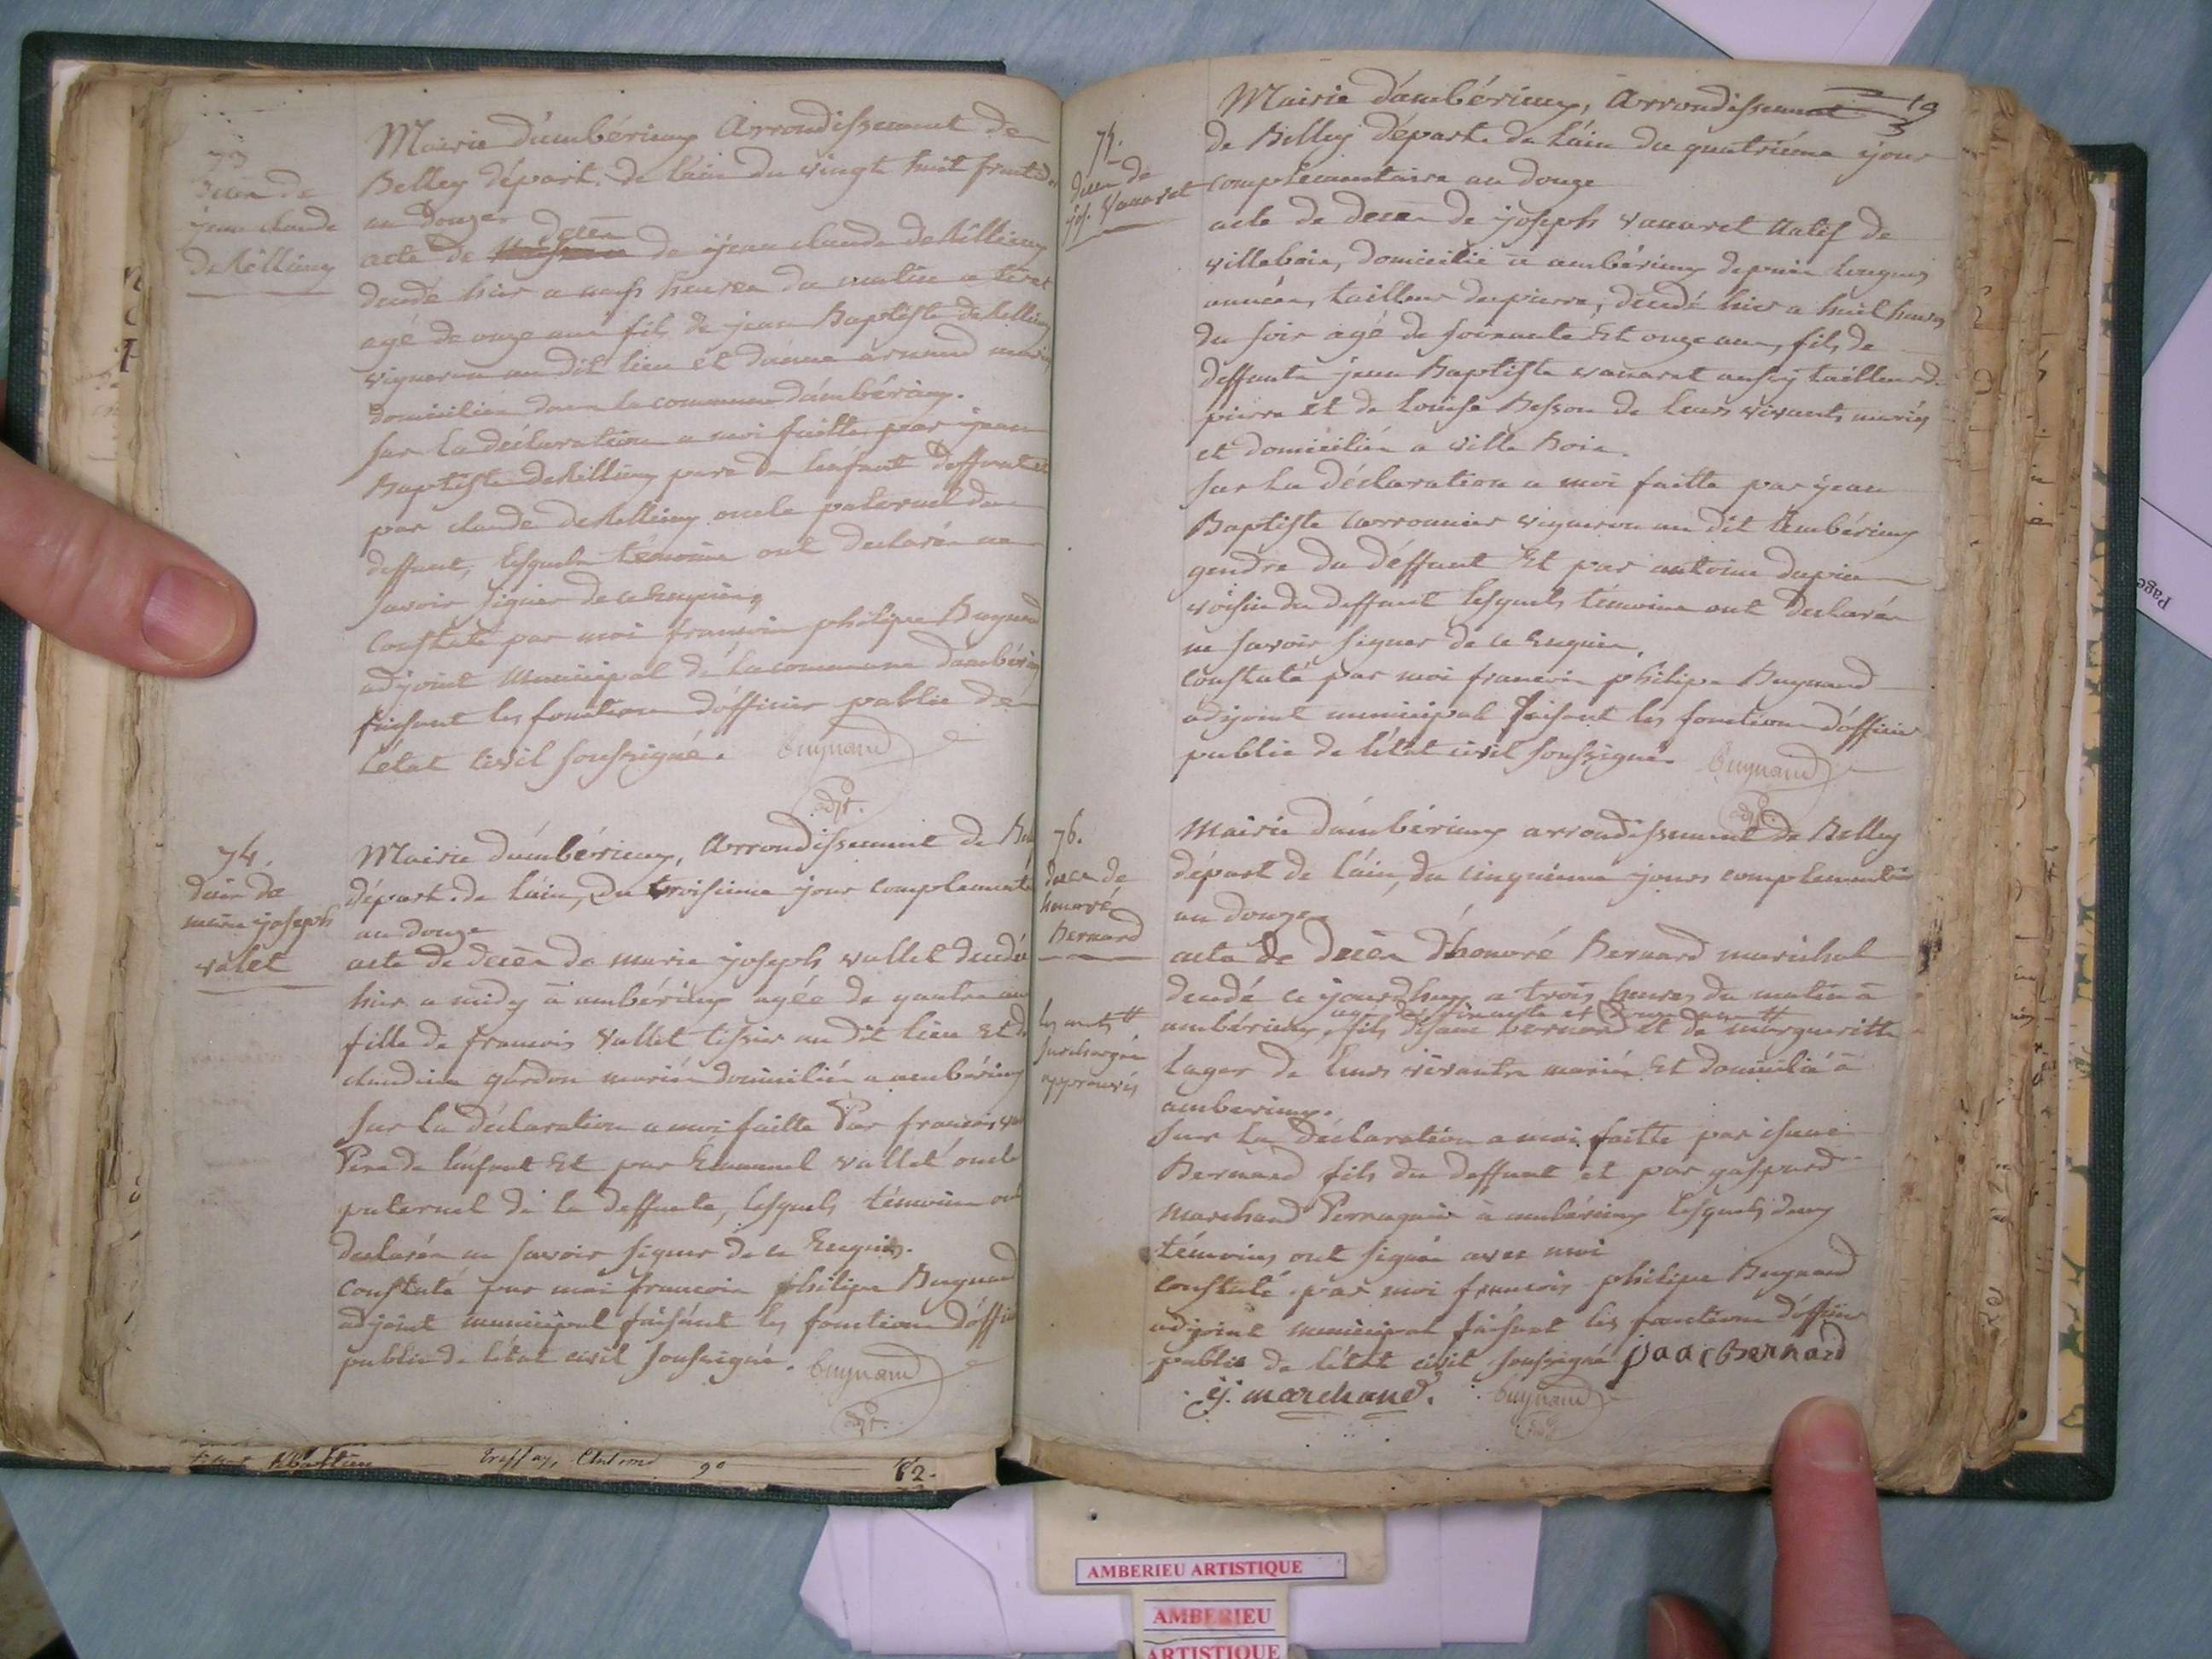 73
Decès de
jean claude
deRillieux
Mairie d'ambérieux Arrondissement de
Belley départ. de l'ain du vingt huit fructidor
an douze.
decès
acte de de jean claude deRillieux
decedé hier a heures du matin a tiret
agé de onze ans fils de jean Baptiste deRillieux
vigneron au dit lieu et d'anne arnaud mariés
domiciliés dans la commune d'ambérieux.
sur la déclaration a moi faitte par jean
Baptiste deRillieux pere de l'enfant deffunt et
par claude deRillieux oncle paternel du
deffunt, lesquels témoins ont declarés ne
savoir signer de ce Enquis
Constaté par moi francois philipe Buynand
adjoint Municipal de la commune d'ambérieux
faisant les fonctions d'officier public de
l'état civil soussigné. buynand
adjt.
74.
decès de
marie joseph
valet
Mairie d'ambérieux, Arrondissement de Belley
départ. de l'ain, du troisieme jour complementaire
an douze
acte de decès de marie joseph vallet decedée
hier a midy a ambérieux agée de quatre ans
fille de francois vallet tissier au dit lieu Et de
claudine gardon mariés domiciliés a ambérieux
sur la déclaration a moi faitte Par francois vallet
Pere de l'enfant Et par Emanuel vallet oncle
paternel de la deffunte, lesquels témoins ont
declarés ne savoir signer de ce Enquis.
constaté par moi francois philipe Buynand
adjoint municipal faisant les fonctions d'officier
public de l'état civil soussigné. buynand
adjt.
Treffay, 9e 82.
19
75.
decès de
jos. vanaret
Mairie d'ambérieux, Arrondissement
de Belley départ. de l'ain du quatriéme jour
complementaire an douze
acte de decès de joseph vanaret natif de
villebois, domicilié a ambérieux depuis longues
années, tailleur de pierre, decedé hier a huit heures
du soir agé de soixante Et onze ans, fils de
deffunts jean Baptiste vanaret aussy tailleur de
pierre et de Louise Besson de leurs vivants mariés
et domiciliés a ville Bois.
sur la déclaration a moi faitte par jean
Baptiste Carronnier vigneron au dit ambérieux
gendre du déffunt Et par antoine dupin
voisin du deffunt lesquels témoins ont declarés
ne savoir signer de ce Enquis.
Constaté par moi francois philipe Buynand
adjoint municipal faisant les fonctions d'officier
public de l'état civil soussigné. buynand
adjt.
76.
decès de
honoré
Bernard
Mairie d'ambérieux arrondissement de Belley
départ de l'ain, du cinquieme jours complementaire
an douze
acte de decès d'honoré Bernard maréchal
decedé ce jourd'huy a trois heures du matin a
agé de soixante et douze ans #
ambérieux, fils d'isaac bernard et de margueritte
les mots #
surchargés
approuvés
Lager de leurs vivants mariés Et domiciliés a
amberieux.
sur la déclaration a moi faitte par isaac
Bernard fils du deffunt et par gaspard
marchand Perruquier a ambérieux lesquels deux
témoins ont signés avec moi
constaté par moi francois philipe Buynand
adjoint municipal faisant les fonctions d'officier
public de l'état civil soussigné isaac Bernard
g. marchand. buynand
adjt
AMBERIEU ARTISTIQUE
AMBERIEU
ARTISTIQUE
Page